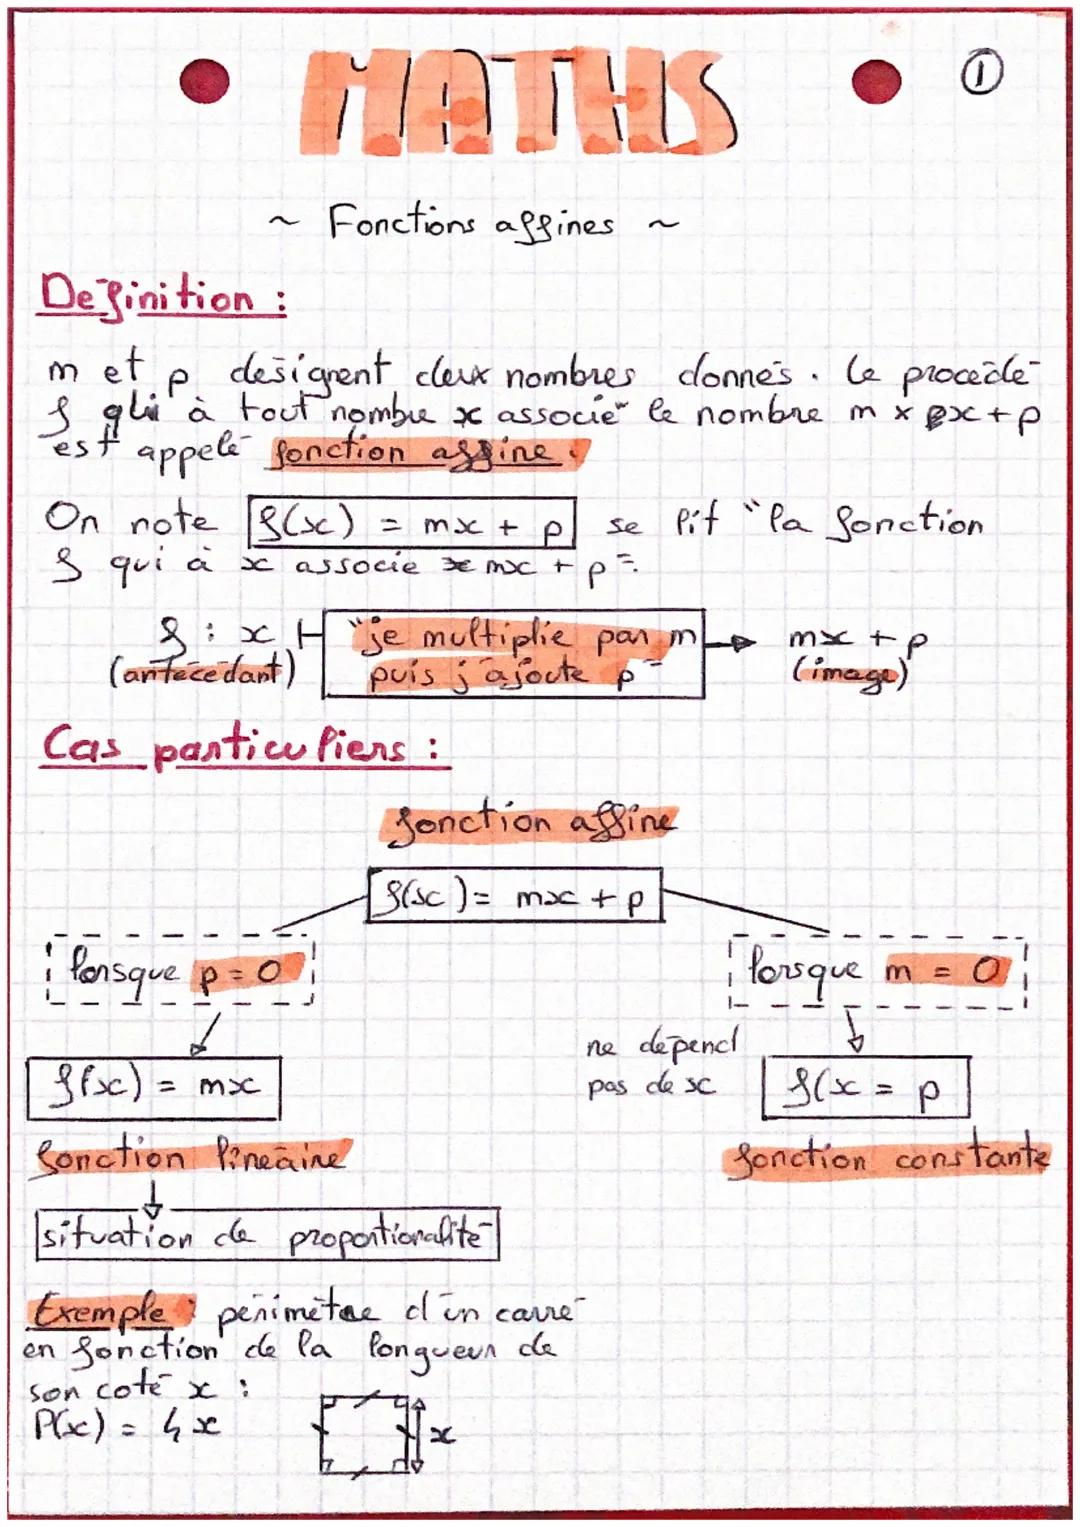 MATHS
①
~ Fonctions affines ~
Définition :
m et p désignent deux nombres donnés. le procédé
f qui à tout nombre x associe le nombre m x x + p
est appelé fonction affine.
On note f(x) = mx + p se lit "la fonction
f qui à x associe mx + p".
f : x "je multiplie par m mx + p
(antécédant) puis j'ajoute p" (image)
Cas particuliers :
fonction affine
f(x) = mx + p
lorsque p = 0 lorsque m = 0
ne dépend
pas de x
f(x) = mx f(x = p
fonction linéaire fonction constante
situation de proportionalité
Exemple : périmètre d'un carré
en fonction de la longueur de
son coté x :
P(x) = 4x
x